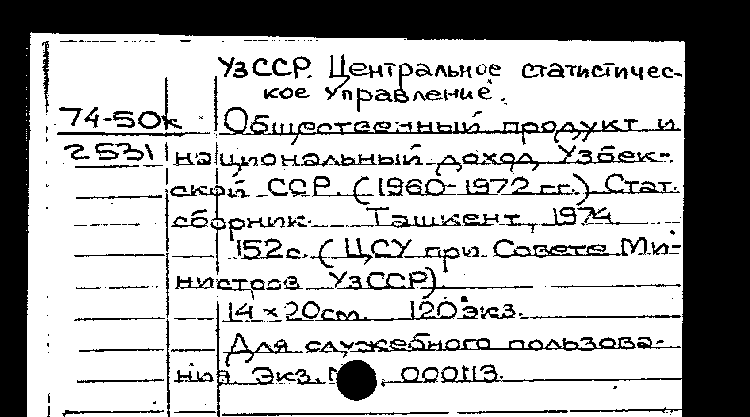 УзССР. Центральное статистичес-
кое управление.
74-50к Общественный продукт и
2531 национальный доход Узбек-
ской ССР. (1960-1972 гг.) Стат.
сборник. Ташкент, 1974.
152с. (ЦСУ при Совете Ми-
нистров УзССР)
14×20см. 120 экз.
Для служебного пользова-
ния Экз. 000113.